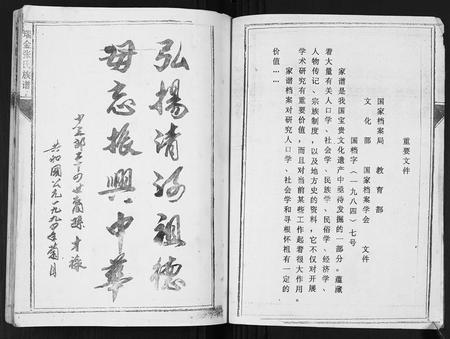 重要文件
国家档案局 教育部
文化部 国家档案学会 文件
国档字（一九八四）七号
家谱是我国宝贵文化遗产中亟待发掘的一部分。蕴藏
着大量有关人口学、社会学、民族学、民俗学、经济学、
人物传记、宗族制度，以及地方史的资料，它不仅对开展
学术研究有重要价值，而且对当前某些工作起着很大作用。
家谱档案对研究人口学、社会学和寻根怀祖有一定的
价值……
弘揚清河祖德
毋忘振興中華
共和國公元一九九四年菊月
瑞金张氏族谱